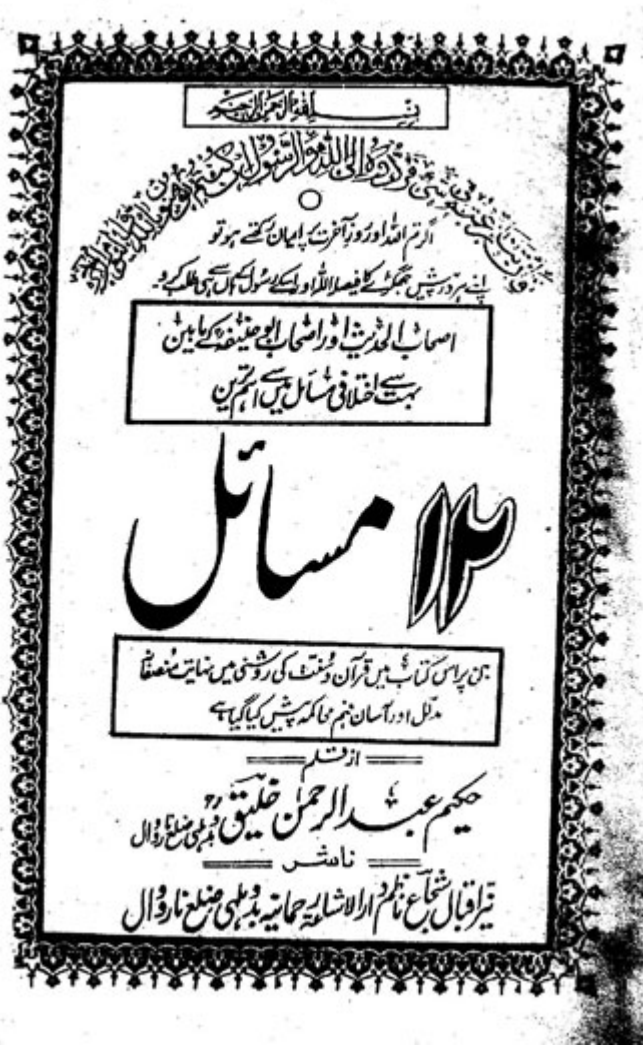 بسم اللہ الرحمن الرحیم
فان تنازعتم فی شیء فردوہ الی اللہ والرسول ان کنتم تؤمنون باللہ والیوم الآخر
اگر تم اللہ اور روزِ آخرت پر ایمان رکھتے ہو تو
اپنے ہر درپیش جھگڑے کا فیصلہ اللہ اور اسکے رسول کے ہاں سے ہی طلب کرو۔
اصحاب الحدیث اور اصحاب ابو حنیفہؒ کے مابین
بہت سے اختلافی مسائل میں سے اہم ترین
۱۲ مسائل
جن پر اس کتاب میں قرآن و سنت کی روشنی میں نہایت منصفانہ
مدلل اور آسان فہم محاکمہ پیش کیا گیا ہے
از قلم
حکیم عبدالرحمن خلیق بدوملہی ضلع نارووال
ناشر
نیر اقبال شجاع ناظم دارالاشاعت رحمانیہ بدوملہی ضلع نارووال